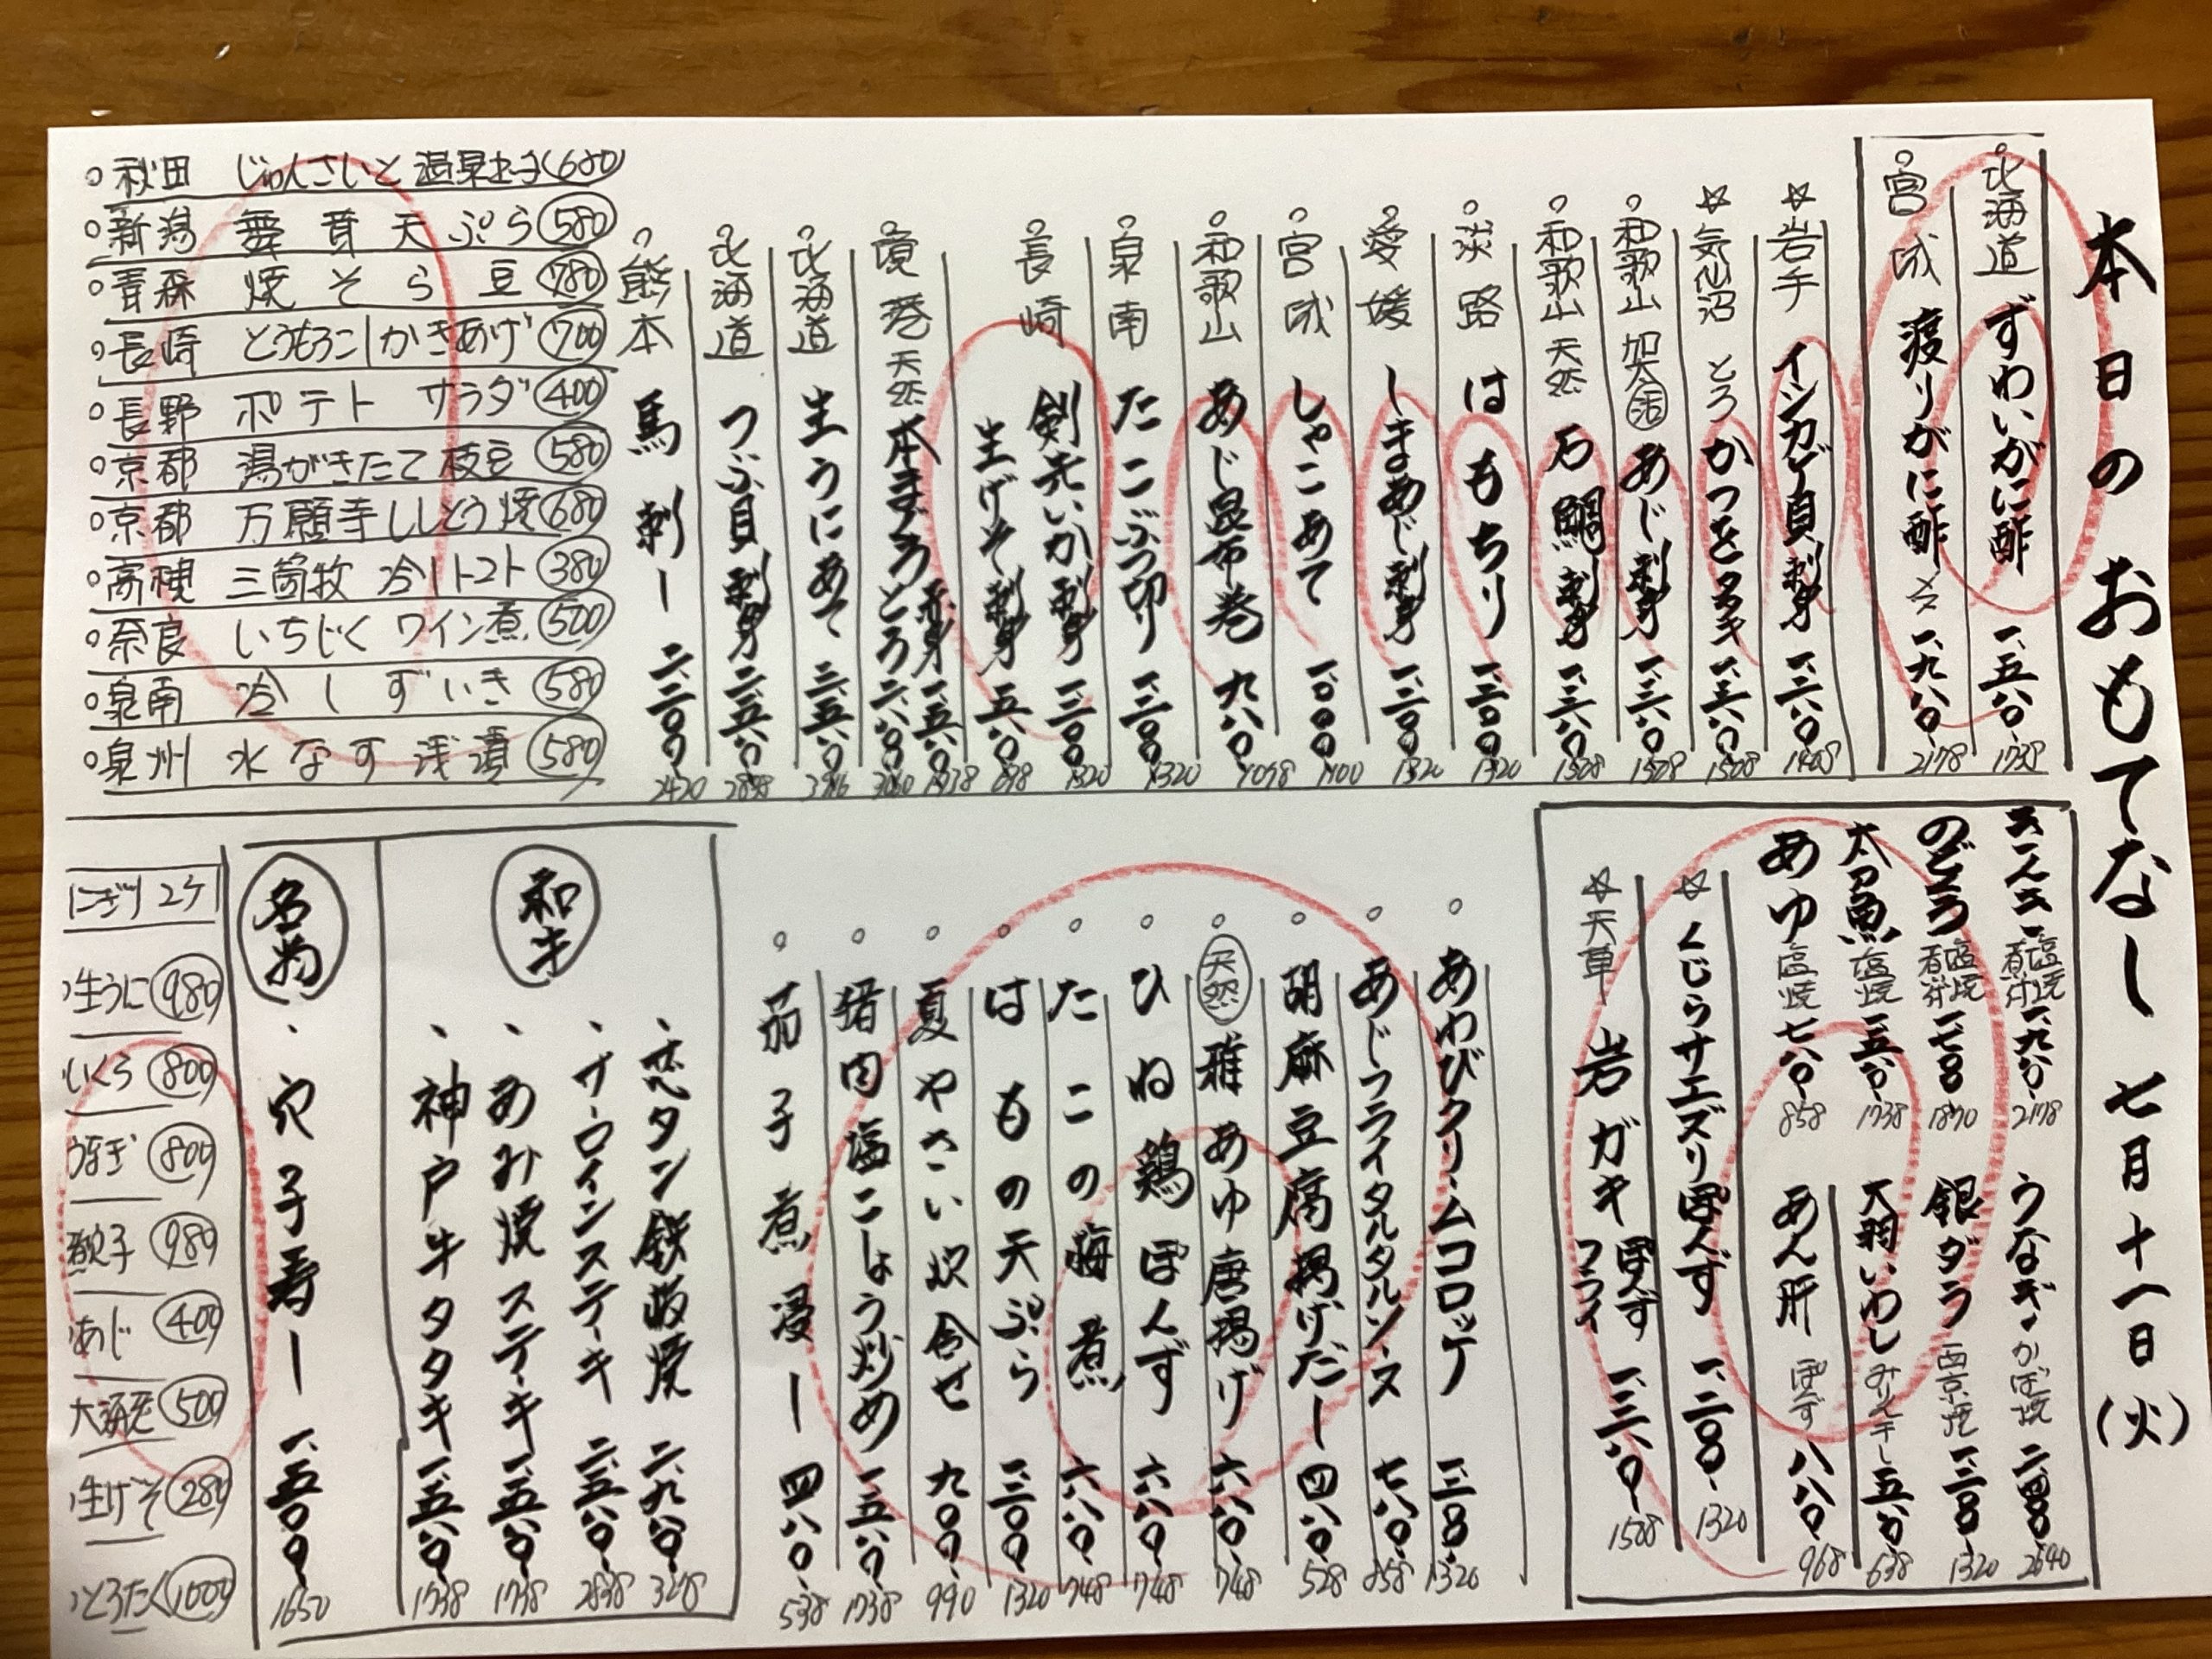 本日のおもてなし 七月十一日(火)
○北海道 ずわいがに酢 一、五八〇 1738
○宮城 渡りがに酢 メス 一、九八〇 2178
☆岩手 イシカゲ貝刺身 一、二八〇 1408
☆気仙沼 とろ かつをタタキ 一、三八〇 1508
○和歌山 加太 活 あじ刺身 一、三八〇 1508
○和歌山 天然 石鯛刺身 一、三八〇 1508
○淡路 はもちり 一、二〇〇 1320
○愛媛 しまあじ刺身 一、二〇〇 1320
○宮城 しゃこあて 一、〇〇〇 1100
○和歌山 あじ昆布巻 九八〇 1098
○泉南 たこぶつ切り 一、二〇〇 1320
○長崎 剣先いか刺身 一、二〇〇 1320
生げそ刺身 五八〇 698
○境港 天然 本まぐろ 赤身 一、五八〇 1738
とろ 二、八〇〇 3080
○北海道 生うにあて 三、五八〇
○北海道 つぶ貝刺身 二、五八〇 2838
○熊本 馬刺し 二、二〇〇 2420
○秋田 じゅんさいと温泉玉子 680
○新潟 舞茸天ぷら 580
○青森 焼そら豆 780
○長崎 とうもろこしかきあげ 700
○長野 ポテトサラダ 400
○京都 湯がきたて枝豆 580
○京都 万願寺ししとう焼 680
○高槻 三箇牧 冷しトマト 380
○奈良 いちじくワイン煮 500
○泉南 冷しずいき 580
○泉州 水なす浅漬 580
きんき 塩焼 煮付 一、九八〇 2178
のどぐろ 塩焼 煮付 一、七〇〇 1870
太刀魚 塩焼 一、五八〇 1738
あゆ 塩焼 七八〇 858
うなぎ かば焼 二、四〇〇 2640
銀ダラ 西京焼 一、二〇〇 1320
大羽いわし みりん干し 五八〇 638
あん肝 ぽんず 八八〇 968
☆くじらサエズリぽんず 一、二〇〇 1320
☆天草 岩ガキ ぽんず フライ 一、三八〇 1508
○あわびクリームコロッケ 一、二〇〇 1320
○あじフライタルタルソース 七八〇 858
○胡麻豆腐揚げだし 四八〇 528
○天然 稚あゆ唐揚げ 六八〇 748
○ひね鶏ぽんず 六八〇 748
○たこの梅煮 六八〇 748
○はもの天ぷら 一、二〇〇 1320
○夏やさい炊合せ 九〇〇 990
○猪肉塩こしょう炒め 一、五八〇 1738
○茄子煮浸し 四八〇 538
和牛
、芯タン鉄板焼 二、九八〇 3278
、サーロインステーキ 二、五八〇 2838
、あみ焼ステーキ 一、五八〇 1738
、神戸牛タタキ 一、五八〇 1738
名物
、穴子寿し 一、五〇〇 1650
にぎり2ケ
、生うに 980
、いくら 800
、うなぎ 800
、煮穴子 980
、あじ 400
、大海老 500
、生げそ 280
、とろたく 1000